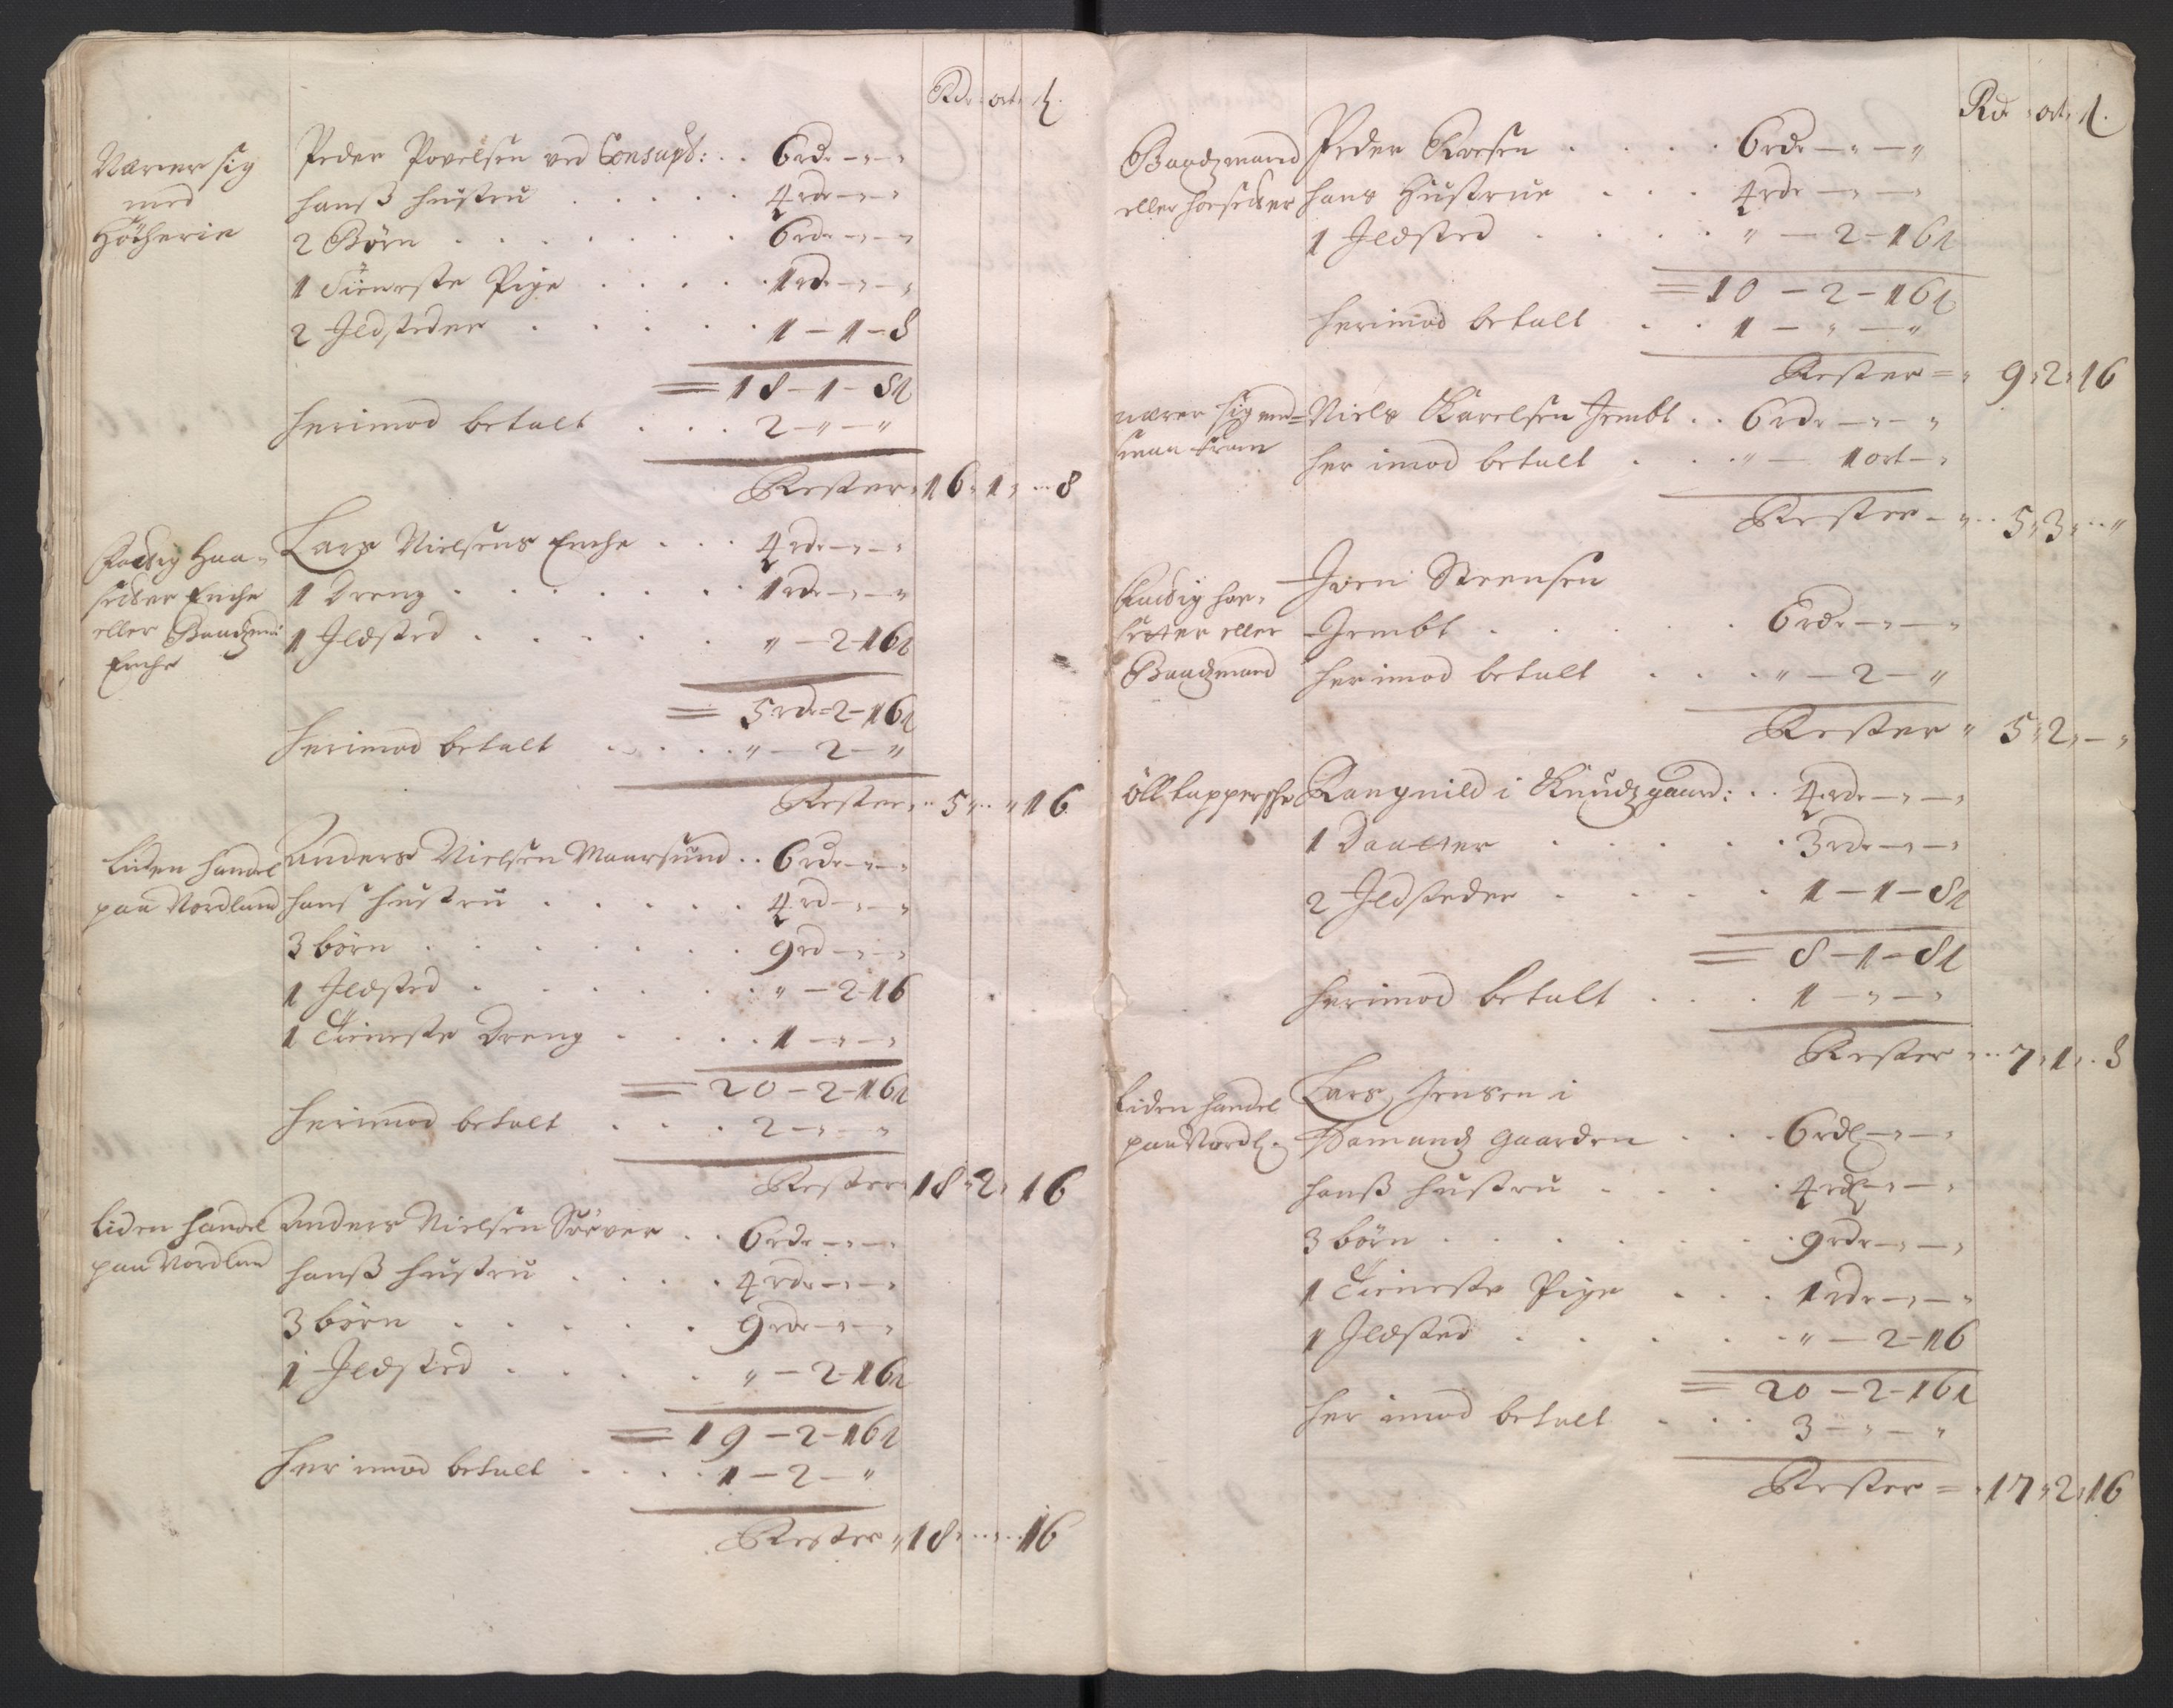 Rdr ort ſ.
Nærer sig
med
Höcherie
Peder Povelsen ved Consupt: . . 6 rdr – " – "
hanß hustru . . . . . 4 rdr – " – "
2 Börn . . . . . . 6 rdr – " – "
1 Tieneste Pige . . . . . 1 rd – " – "
2 Jldsteder . . . . . 1 – 1 – 8
= 18 – 1 – 8 ſ
herimod betalt . . . 2 – " – "
Rester " 16 " 1 " . . 8
Fattig Haa-
sedtzer Enche
eller Baadzm:
Enche
Lars Nielsens Enche . . . 4 rdr – " – "
1 Dreng . . . . . . 1 rdr – " – "
1 Jldsted . . . . . " – 2 – 16 ſ
= 5 rdr = 2 – 16 ſ
herimod betalt . . . . . " – 2 – "
Rester " . . 5 " . . " 16
Liden handel
paa Nordland
Anders Nielsen Maarsund . . 6 rdr – " – "
hans hustru . . . . . 4 rd – " – "
3 börn . . . . . . 9 rd – " – "
1 Jldsted . . . . . " – 2 – 16
1 Tieneste Dreng . . . . 1 – " – "
= 20 – 2 – 16 ſ
herimod betalt . . . 2 – " – "
Rester " 18 " 2 " 16
Liden handel
paa Nordland
Anders Nielsen Sörver . . 6 rdr – " – "
hanß hustru . . . . 4 rdr – " – "
3 börn . . . . . 9 rdr – " – "
1 Jldsted . . . . . " – 2 – 16 ſ
= 19 – 2 – 16 ſ
her imod betalt . . . . 1 – 2 – "
Rester " 18 " . . " . . 16
Rdr ort ſ.
Baadzmand
eller hoesedter
Peder Roesen . . . . 6 rdr – " – "
hans Hustrue . . . 4 rdr – " – "
1 Jldsted . . . . " – 2 – 16 ſ
= 10 – 2 – 16 ſ
herimod betalt . . 1 – " – "
Rester = " 9 " 2 " 16
nærer sig med
smaa kram
Niels Karelsen Jembt . . 6 rdr – " – "
her imod betalt . . . " – 1 ort – "
Rester – " . . 5 " 3 " . . "
Fattig hoe-
sætter eller
Baadzmand
Joen Steensen
Jembt . . . . . . 6 rdr – " – "
herimod betalt . . . " – 2 – "
Rester " 5 " 2 " – "
Ölltappersche
Rangnild i Knudzgaard: . . 4 rdr – " – "
1 Daatter . . . . . 3 rdr – " – "
2 Jldsteder . . . . . 1 – 1 – 8 ſ
= 8 – 1 – 8 ſ
herimod betalt . . . 1 – " – "
Rester " . . 7 " 1 " . . 8
Liden handel
paa Nordl:
Lars Jensen i
Gaarden . . . 6 rdl – " – "
hanß hustru . . . . 4 rdl – " – "
3 börn . . . . . . 9 rdr – " – "
1 Tieneste Pige . . . 1 rdr – " – "
1 Jldsted . . . . . " – 2 – 16
= 20 – 2 – 16 ſ
her imod betalt . . . 3 – " – "
Rester = " 17 " 2 " 16